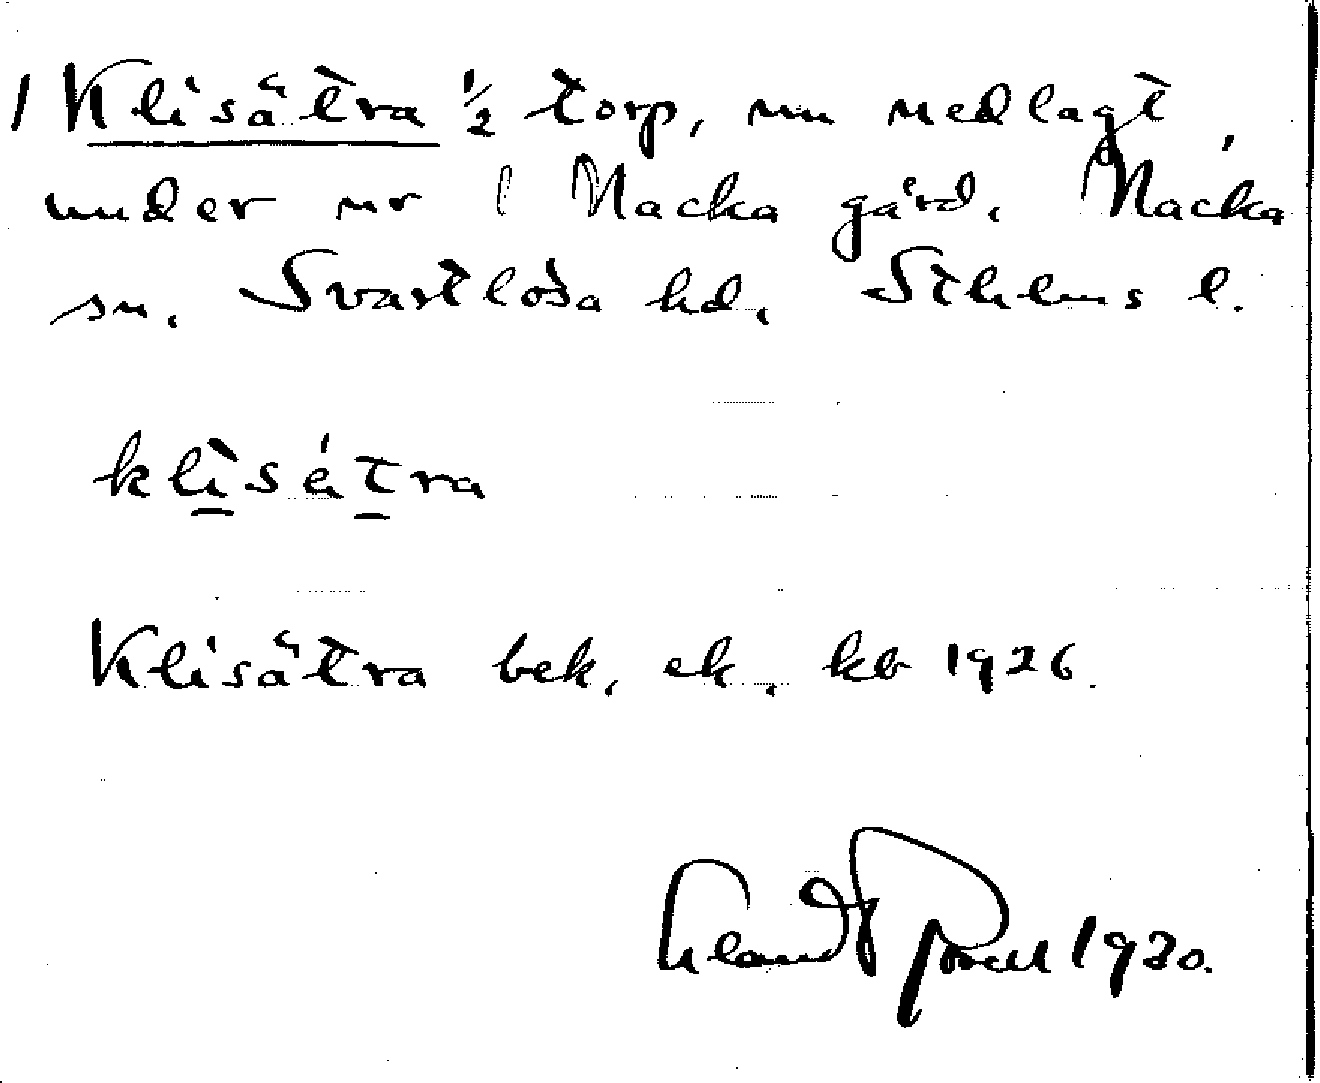 1 Klisätra ½ torp, nu nedlagt,
under nr 1 Nacka gård. Nacka
sn. Svartlösa hd. Sthlms l.
klìsátra
Klisätra bek. ek. kb 1926.
1930.